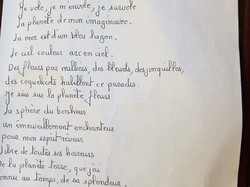 Je vole, je m'envole, je survole
La planète de mon imaginaire.
La mer est d'un bleu lagon.
Le ciel couleur arc en ciel.
Des fleurs par milliers, des bleuets, des jonquilles,
des coquelicots habillent ce paradis.
Je suis sur la planète fleurs
La sphère du bonheur
un émerveillement enchanteur
pour mon esprit rieur
libre de toutes ses horreurs
De la planète terre, que j'ai
connu au temps, de sa splendeur,